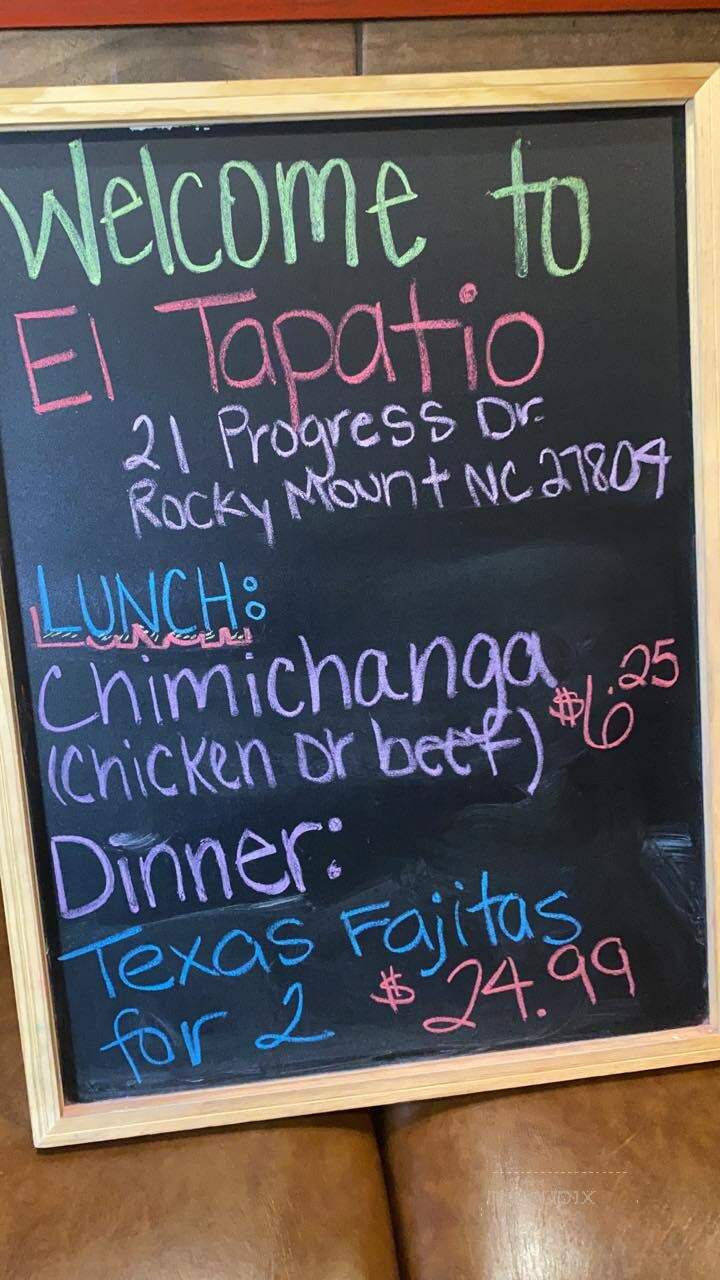 Welcome to
El Tapatio
21 Progress Dr.
Rocky Mount NC 27804
LUNCH:
Chimichanga $6.25
(Chicken or beef)
Dinner:
Texas Fajitas
for 2 $24.99